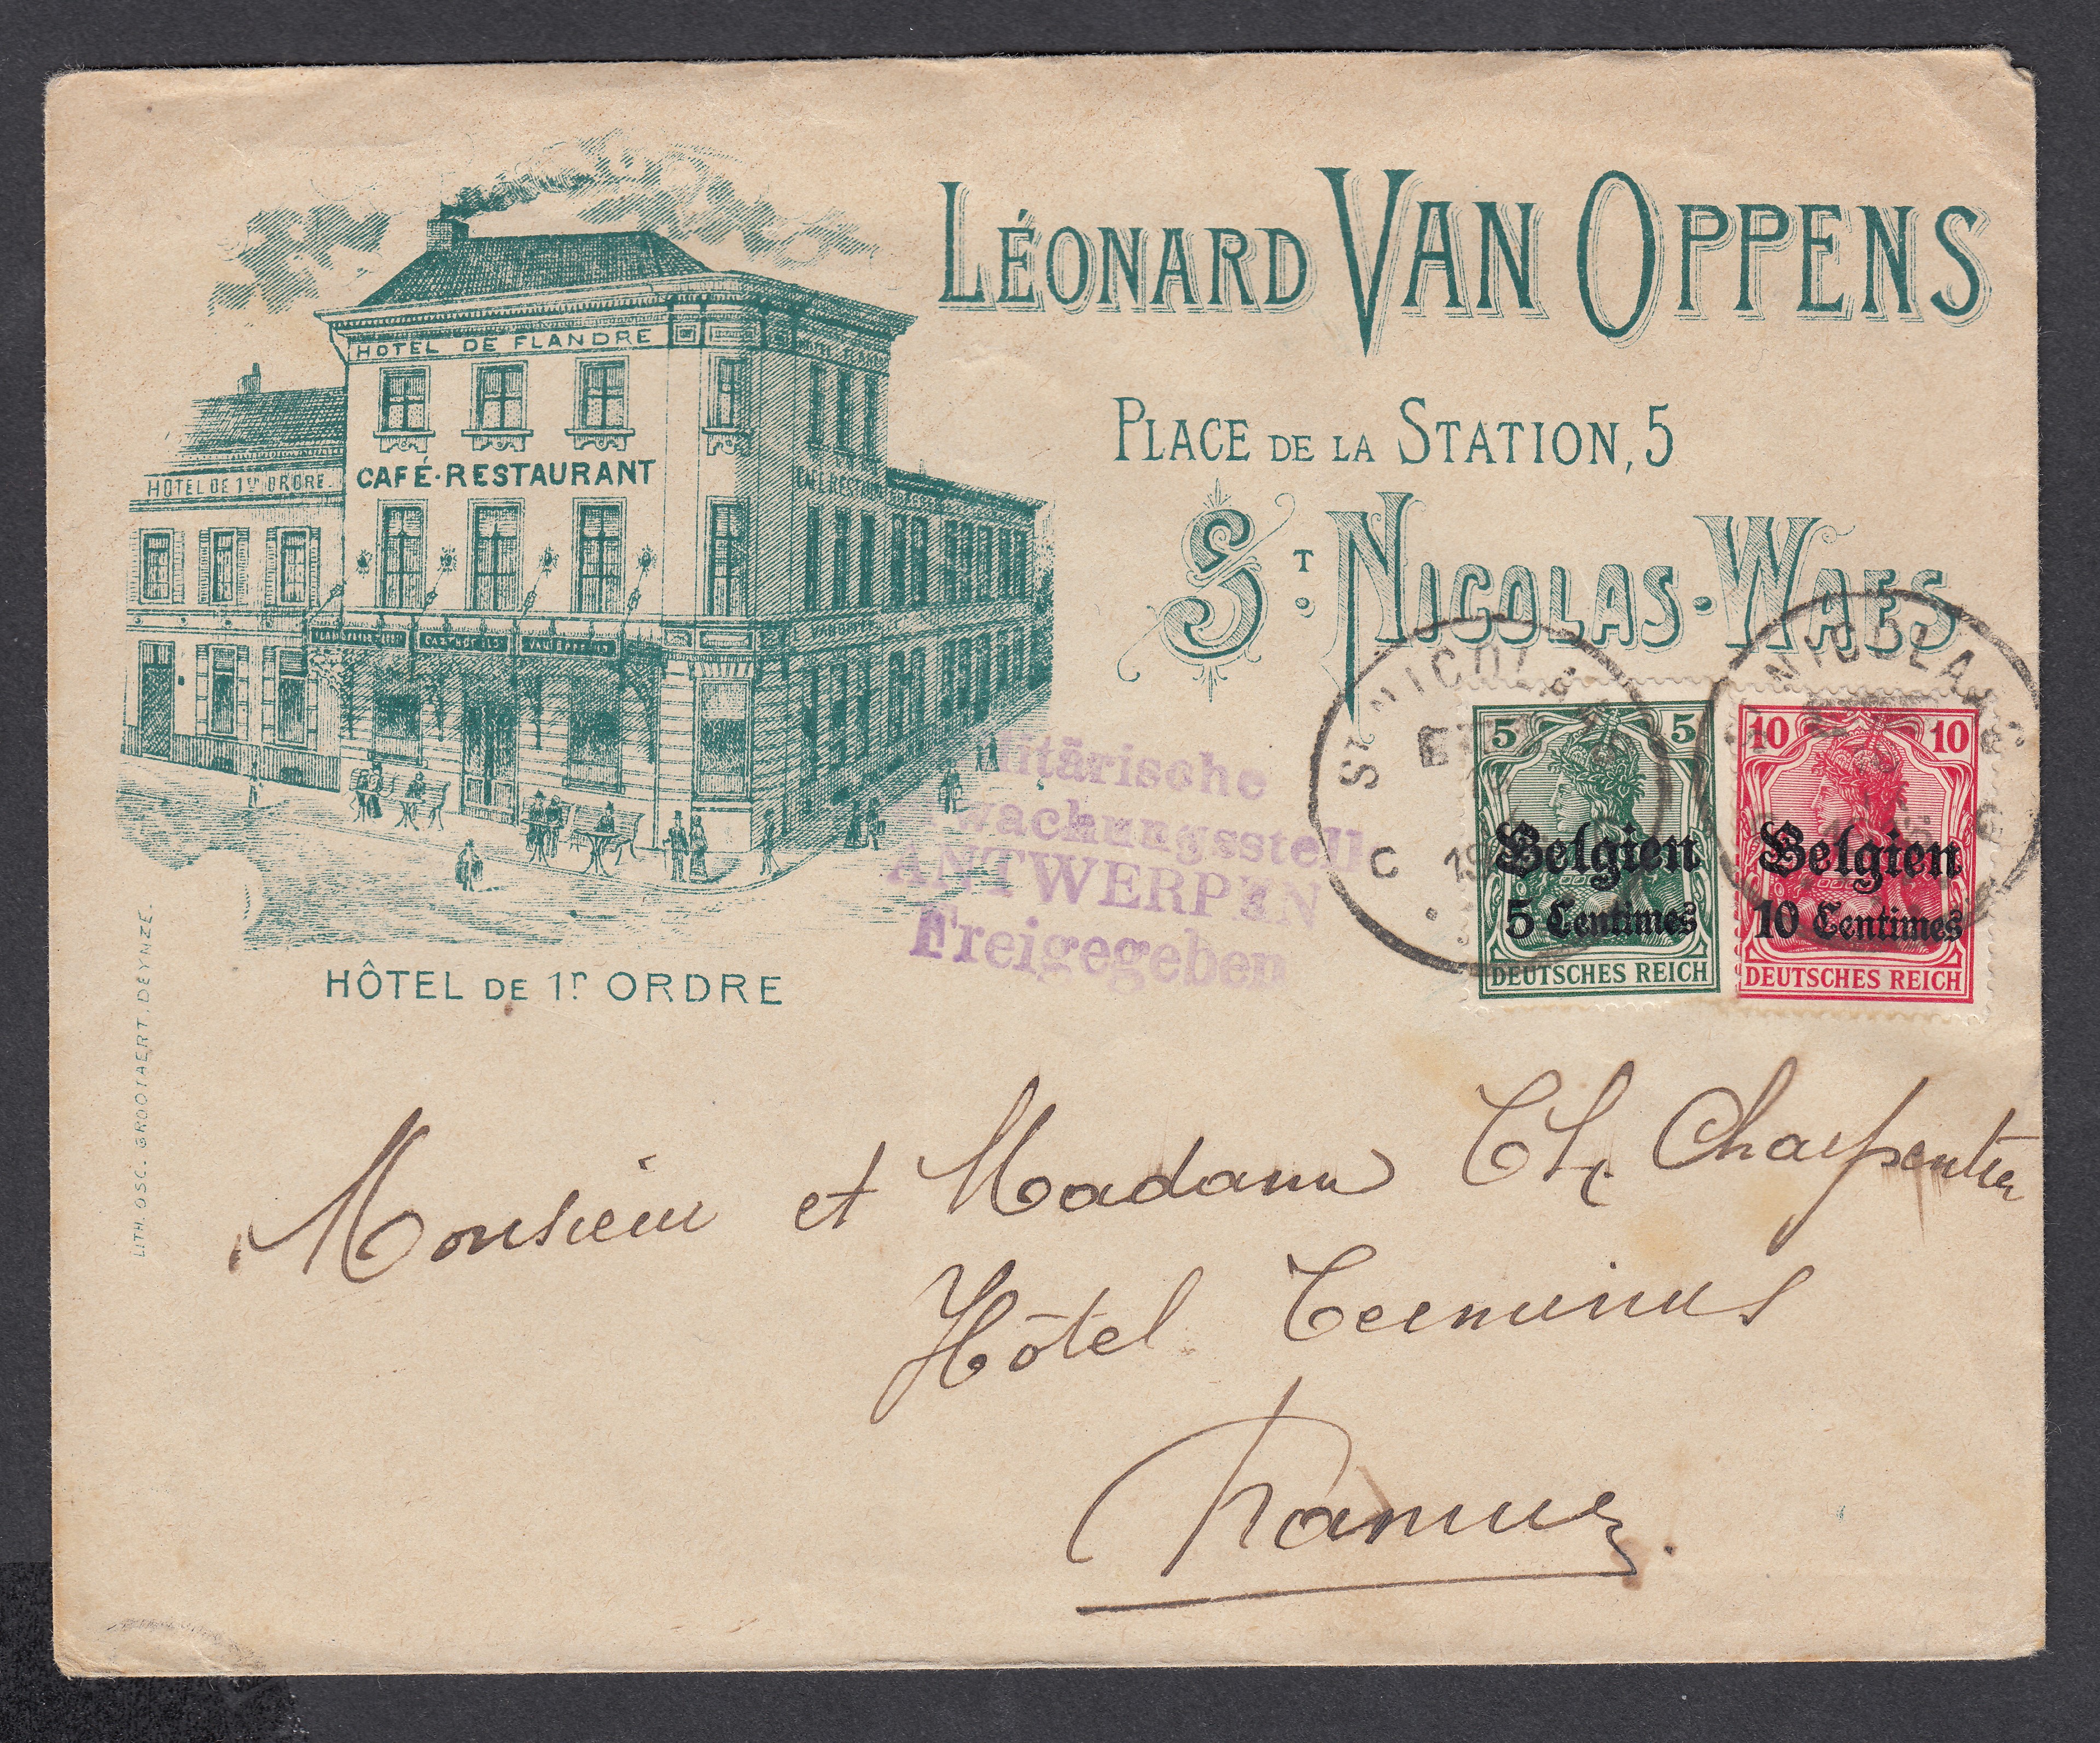 LÉONARD VAN OPPENS
PLACE DE LA STATION, 5
ST. NICOLAS-WAES
HOTEL DE FLANDRE
CAFÉ-RESTAURANT
HOTEL DE 1r ORDRE.
HÔTEL DE 1r ORDRE
LITH. OSC. GROOTAERT. DEYNZE.
ANTWERPEN
Freigegeben
ST NICOLA
C
5 5
Belgien
5 Centimes
DEUTSCHES REICH
NICOLA
10 10
Belgien
10 Centimes
DEUTSCHES REICH
Monsieur et Madame Ch. Charpentier
Hôtel Terminus
Namur.